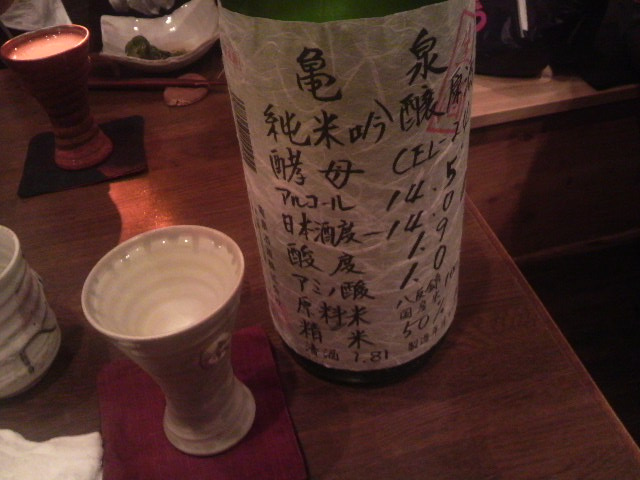 亀 泉
純米吟醸 原酒
酵母 CEL-24
アルコール 14.5
日本酒度 -14.0
酸度 1.9
アミノ酸 1.0
原料米 八反錦
精米 50%
清酒 1.8l 製造